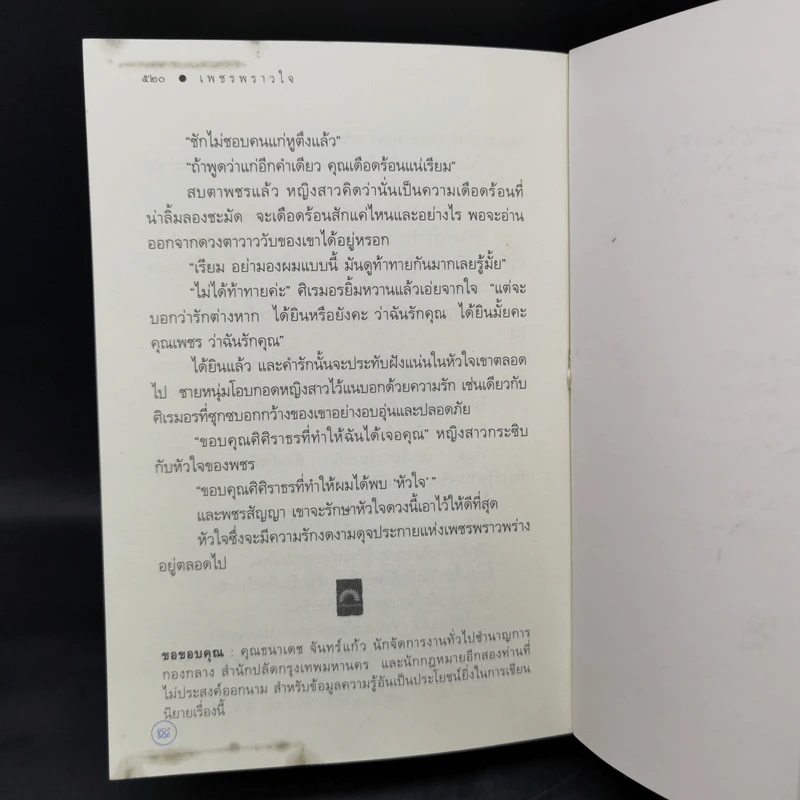 ๕๒๐ ● เพชรพราวใจ
“ชักไม่ชอบคนแก่หูตึงแล้ว”
“ถ้าพูดว่าแก่อีกคำเดียว คุณเดือดร้อนแน่เรียม”
สบตาพชรแล้ว หญิงสาวคิดว่านั่นเป็นความเดือดร้อนที่
น่าลิ้มลองชะมัด จะเดือดร้อนสักแค่ไหนและอย่างไร พอจะอ่าน
ออกจากดวงตาวาววับของเขาได้อยู่หรอก
“เรียม อย่ามองผมแบบนี้ มันดูท้าทายกันมากเลยรู้มั้ย”
“ไม่ได้ท้าทายค่ะ” ศิเรมอรยิ้มหวานแล้วเอ่ยจากใจ “แต่จะ
บอกว่ารักต่างหาก ได้ยินหรือยังคะ ว่าฉันรักคุณ ได้ยินมั้ยคะ
คุณเพชร ว่าฉันรักคุณ”
ได้ยินแล้ว และคำรักนั้นจะประทับฝังแน่นในหัวใจเขาตลอด
ไป ชายหนุ่มโอบกอดหญิงสาวไว้แนบอกด้วยความรัก เช่นเดียวกับ
ศิเรมอรที่ซุกซบอกกว้างของเขาอย่างอบอุ่นและปลอดภัย
“ขอบคุณศิศิราธรที่ทำให้ฉันได้เจอคุณ” หญิงสาวกระซิบ
กับหัวใจของพชร
“ขอบคุณศิศิราธรที่ทำให้ผมได้พบ ‘หัวใจ’ ”
และพชรสัญญา เขาจะรักษาหัวใจดวงนี้เอาไว้ให้ดีที่สุด
หัวใจซึ่งจะมีความรักงดงามดุจประกายแห่งเพชรพราวพร่าง
อยู่ตลอดไป
ขอขอบคุณ : คุณธนาเดช จันทร์แก้ว นักจัดการงานทั่วไปชำนาญการ
กองกลาง สำนักปลัดกรุงเทพมหานคร และนักกฎหมายอีกสองท่านที่
ไม่ประสงค์ออกนาม สำหรับข้อมูลความรู้อันเป็นประโยชน์ยิ่งในการเขียน
นิยายเรื่องนี้